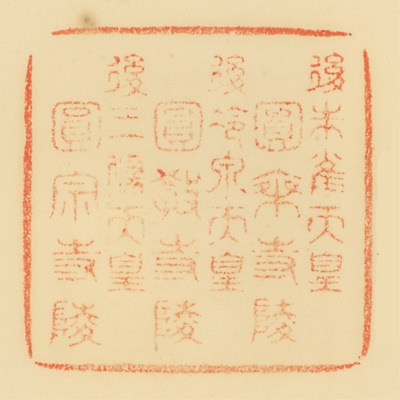 後朱雀天皇
圓乘寺陵
後冷泉天皇
圓教寺陵
後三條天皇
圓宗寺陵